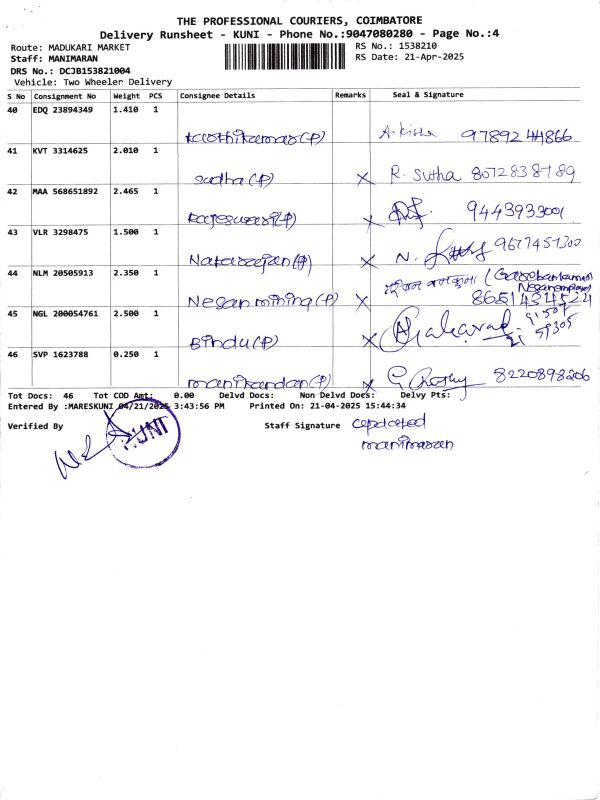 THE PROFESSIONAL COURIERS, COIMBATORE
Delivery Runsheet - KUNI - Phone No.:9047080280 - Page No.:4
Route: MADUKARI MARKET
RS No.: 1538210
Staff: MANIMARAN
RS Date: 21-Apr-2025
DRS No.: DCJB153821004
Vehicle: Two Wheeler Delivery
S No Consignment No Weight PCS Consignee Details Remarks Seal & Signature
40 EDQ 23894349 1.410 1
Karthikumar(P) 9789244866
41 KVT 3314625 2.010 1
sudha(P) X R. Sutha 8072838789
42 MAA 568651892 2.465 1
Rajeswari(P) X 9443933001
43 VLR 3298475 1.500 1
Natarajan(P) X N. 9677457300
44 NLM 20505913 2.350 1
Negan mining(P) X 8651434524
45 NGL 200054761 2.500 1
Bindu(P) X
46 SVP 1623788 0.250 1
manikandan(P) X 8220898206
Tot Docs: 46 Tot COD Amt: 0.00 Delvd Docs: Non Delvd Docs: Delvy Pts:
Entered By :MARESKUNI 04/21/2025 3:43:56 PM Printed On: 21-04-2025 15:44:34
Verified By KUNI Staff Signature updated
manimaran